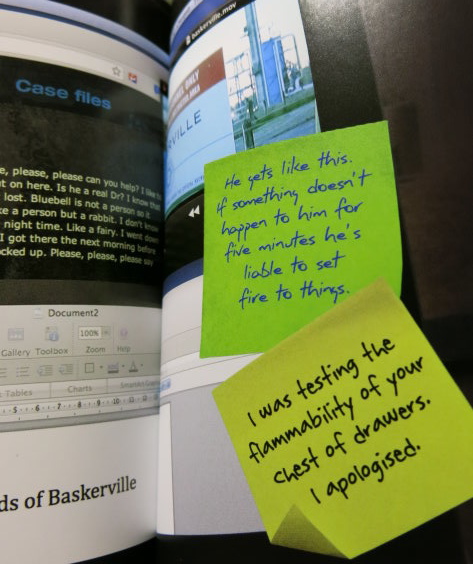 Case files
e, please, please can you help? I
t on here. Is he a real Dr? I know
lost. Bluebell is not a person so it
ke a person but a rabbit. I don't know
night time. Like a fairy. I went down
I got there the next morning before
ocked up. Please, please, please say
Document2
100%
Gallery Toolbox Zoom Help
Tables Charts SmartArt
5 6 7 8 9 10 11 12
ds of Baskerville
baskerville.mov
ONLY
VILLE
He gets like this.
If something doesn't
happen to him for
five minutes he's
liable to set
fire to things.
I was testing the
flammability of your
chest of drawers.
I apologised.